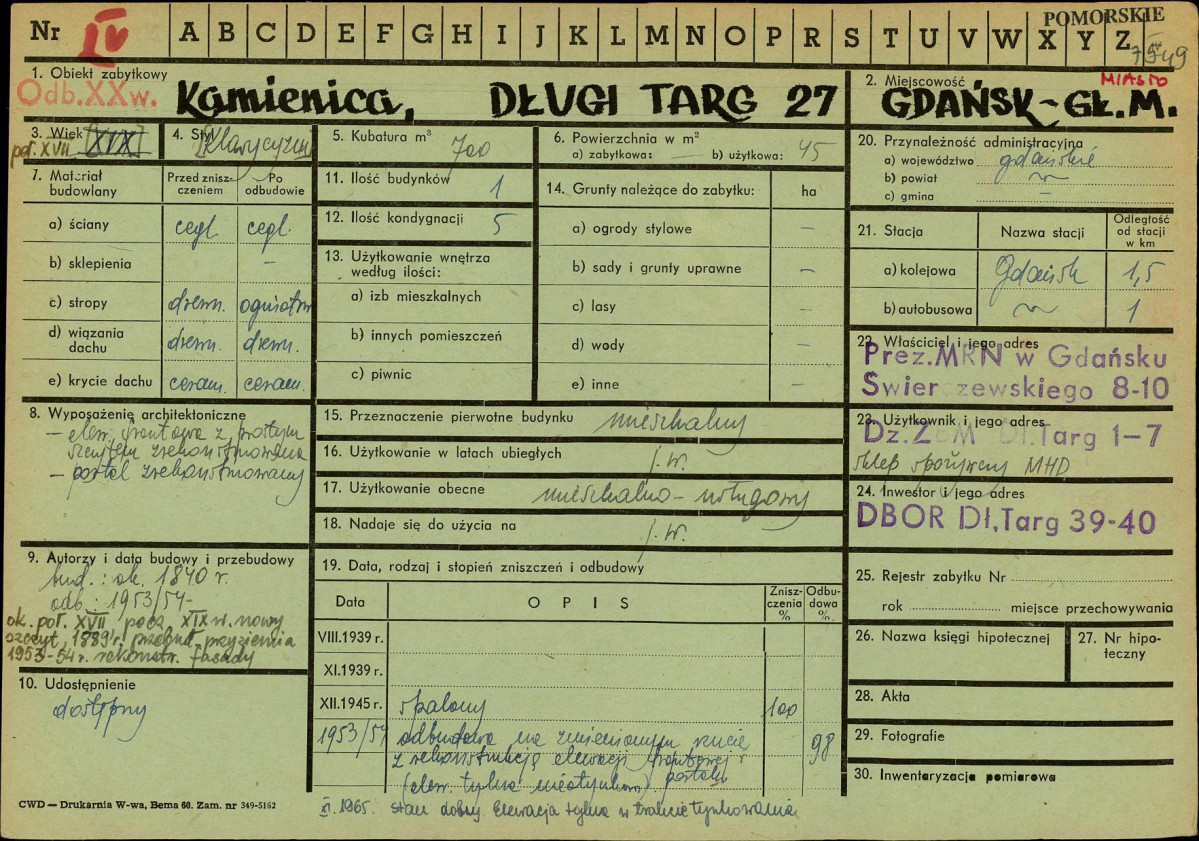 Nr IV A B C D E F G H I J K L M N O P R S T U V W X Y Z
POMORSKIE
1. Obiekt zabytkowy
Odb. XX w.
Kamienica, DŁUGI TARG 27
2. Miejscowość
MIASTO
GDAŃSK - GŁ. M.
3. Wiek XIX
poł. XVII
4. Styl Klasycyzm
5. Kubatura m³ 700
6. Powierzchnia w m²
a) zabytkowa: — b) użytkowa: 45
7. Materiał budowlany
Przed zniszczeniem
Po odbudowie
a) ściany cegl. cegl.
b) sklepienia –
c) stropy drewn. ogniotrw
d) wiązania dachu drewn. drewn.
e) krycie dachu ceram. ceram.
8. Wyposażenie architektoniczne
– elew. frontowa z prostym
szczytem zrekonstruowana
– portal zrekonstruowany
9. Autorzy i data budowy i przebudowy
bud.: ok. 1840 r.
odb.: 1953/54-
ok. poł. XVII pocz. XIX w. nowy
szczyt, 1889 r. przebud. przyziemia
1953-54 r. rekonstr. fasady
10. Udostępnienie
dostępny
11. Ilość budynków 1
12. Ilość kondygnacji 5
13. Użytkowanie wnętrza
według ilości:
a) izb mieszkalnych
b) innych pomieszczeń
c) piwnic
14. Grunty należące do zabytku: ha
a) ogrody stylowe –
b) sady i grunty uprawne –
c) lasy –
d) wody –
e) inne –
15. Przeznaczenie pierwotne budynku mieszkalny
16. Użytkowanie w latach ubiegłych j.w.
17. Użytkowanie obecne mieszkalno-usługowy
18. Nadaje się do użycia na j.w.
19. Data, rodzaj i stopień zniszczeń i odbudowy
Data OPIS Zniszczenia % Odbudowa %
VIII.1939 r.
XI.1939 r.
XII.1945 r. spalony 100
1953/54 odbudowa na zmienionym rzucie 98
z rekonstrukcją elewacji frontowej i
(elew. tylna nieotynkow.) portalu
XI. 1965. stan dobry. Elewacja tylna w trakcie tynkowania
20. Przynależność administracyjna
a) województwo gdańskie
b) powiat
c) gmina –
21. Stacja
Nazwa stacji
Odległość od stacji w km
a) kolejowa Gdańsk 1,5
b) autobusowa 1
22. Właściciel i jego adres
Prez. MRN w Gdańsku
Świerczewskiego 8-10
23. Użytkownik i jego adres
Dz. ZBM Dł. Targ 1-7
sklep spożywczy MHD
24. Inwestor i jego adres
DBOR Dł. Targ 39-40
25. Rejestr zabytku Nr
rok miejsce przechowywania
26. Nazwa księgi hipotecznej
27. Nr hipoteczny
28. Akta
29. Fotografie
30. Inwentaryzacja pomiarowa
CWD — Drukarnia W-wa, Bema 60. Zam. nr 349-5162